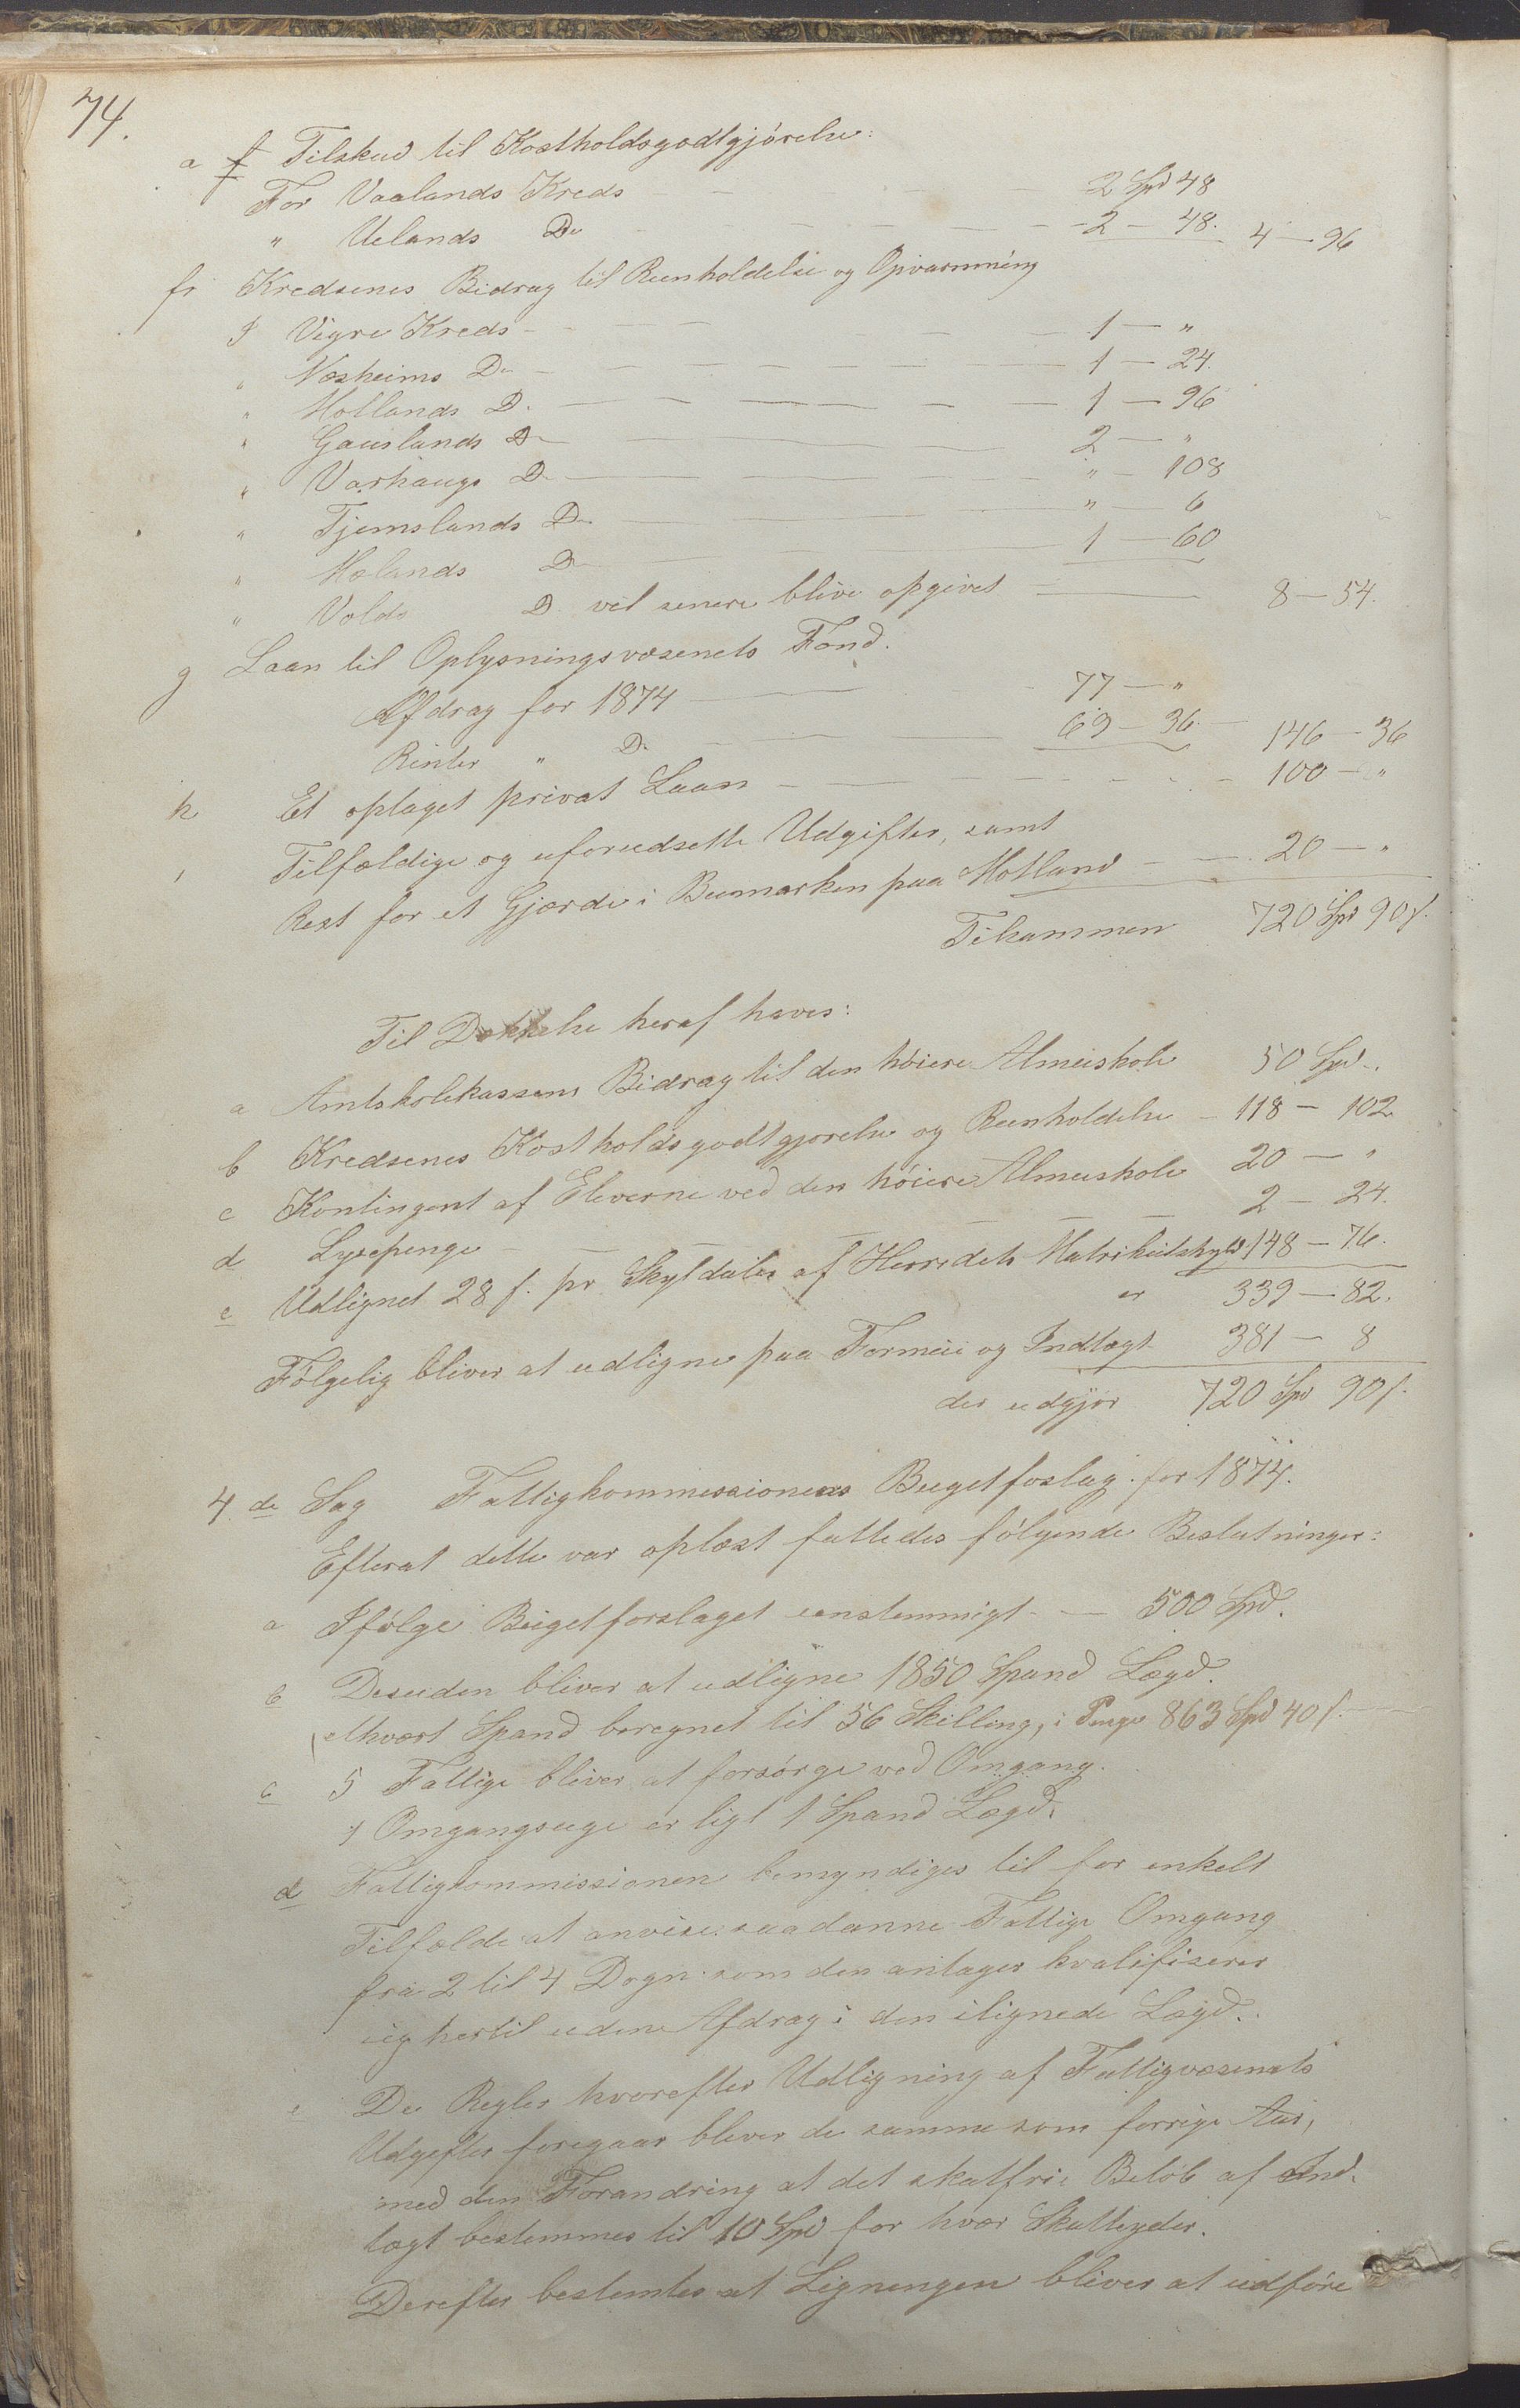 74.
a f Tilskud til Kostholdsgodtgjörelse:
For Vaalands Kreds - - - 2 Spd 48
" Uelands Do - - - 2 - 48. 4 - 96
fr Kredsenes Bidrag til Reenholdelse og Opvarmning
I Vigre Kreds - - - 1 - "
" Næsheims Do - - - 1 - 24.
" Hollands D. - - - 1 - 96
" Gauslands D - - - 2 - "
" Varhaugs D. - - - " - 108
" Tjemslands D. - - - " - 6
" Hølands D - - - 1 - 60
" Volds D. vil senere blive opgivet - - 8 - 54.
g Laan til Oplysningsvæsenets Fond.
Afdrag for 1874 - - - 77 - "
Renter " D. - - - 69 - 36. - 146 - 36
h Et optaget privat Laan - - - 100 - "
i Tilfældige og uforudsette Udgifter, samt
Rest for et Gjærde i Buemarken paa Motland - - 20 - "
Tilsammen 720 Spd 90 s.
Til Dækkelse heraf haves:
a Amtsskolekassens Bidrag til den höiere Almueskole 50 Spd.
b Kredsenes Kostholdsgodtgjorelse og Reenholdelse - 118 - 102
c Kontingent af Eleverne ved den höiere Almueskole 20 - "
d Lysepenge - - - 2 - 24.
e Udlignet 28 s. pr Skyldaler af Herredets Matrikulskyld 148 - 76.
er 339 - 82.
Fölgelig bliver at udligne paa Formue og Indtægt 381 - 8
der udgjör 720 Spd 90 s.
4de Sag Fattigkommissionens Bugetfoslag for 1874.
Efterat dette var oplæst fattedes fölgende Beslutninger:
a Ifölge Bugetforslaget eenstemmigt - 500 Spd.
b Desuden bliver at udligne 1850 Spand Lægd.
hvert Spand beregnet til 56 Skilling, i Penge 863 Spd 40 s.
c 5 Fattige bliver at forsörge ved Omgang.
1 Omgangsuge er ligt 1 Spand Lægd.
d Fattigkommissionen bemyndiges til for enkelt
Tilfælde at anvise saadanne Fattige Omgang
fra 2 til 4 Dogn som den antager kvalifiserer
sig hertil uden Afdrag i den ilignede Lægd.
e De Regler hvorefter Udligning af Fattigvæsenets
Udgifter foregaar bliver de samme som forrige Aar,
med den Forandring at det skatfrie Belöb af Ind-
tægt bestemmes til 10 Spd for hver Skatteyder.
Derefter bestemtes at Ligningen bliver at udföre